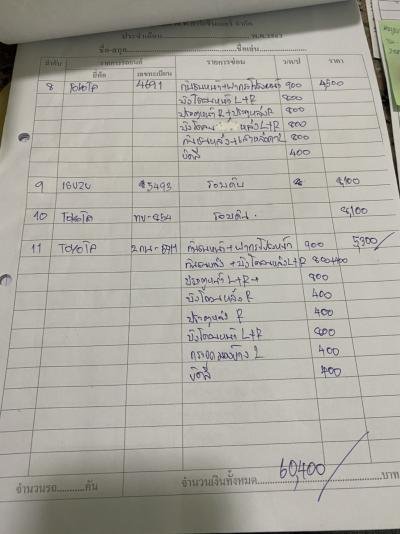 ประจำเดือน พ.ศ.2563
ชื่อ-สกุล ชื่อเล่น
ลำดับ รายการรถยนต์ รายการซ่อม ว/ด/ป ราคา
ยี่ห้อ เลขทะเบียน
8 TOYOTA 4691 กันชนหน้า+ฝากระโปรงหน้า 900 4500
บังโคลนหน้า L+R 800
ประตูหน้า R+ประตูหลัง R 800
บังโคลน หลัง L+R 800
กันชนหลัง 800
ขัดสี 400
9 ISUZU 5493 รอบคัน 8100
10 TOYOTA รอบคัน 8,100
11 TOYOTA กันชนหน้า+ฝากระโปรงหน้า 900 5,300/
กันชนหลัง +บังโคลนหลัง L+R 800+400
ประตูหน้า L+R 800
บังโคลนหลัง R 400
ประตูหลัง R 400
บังโคลนหน้า L+R 800
400
ขัดสี 400
จำนวนรถ คัน จำนวนเงินทั้งหมด 60,400 บาท